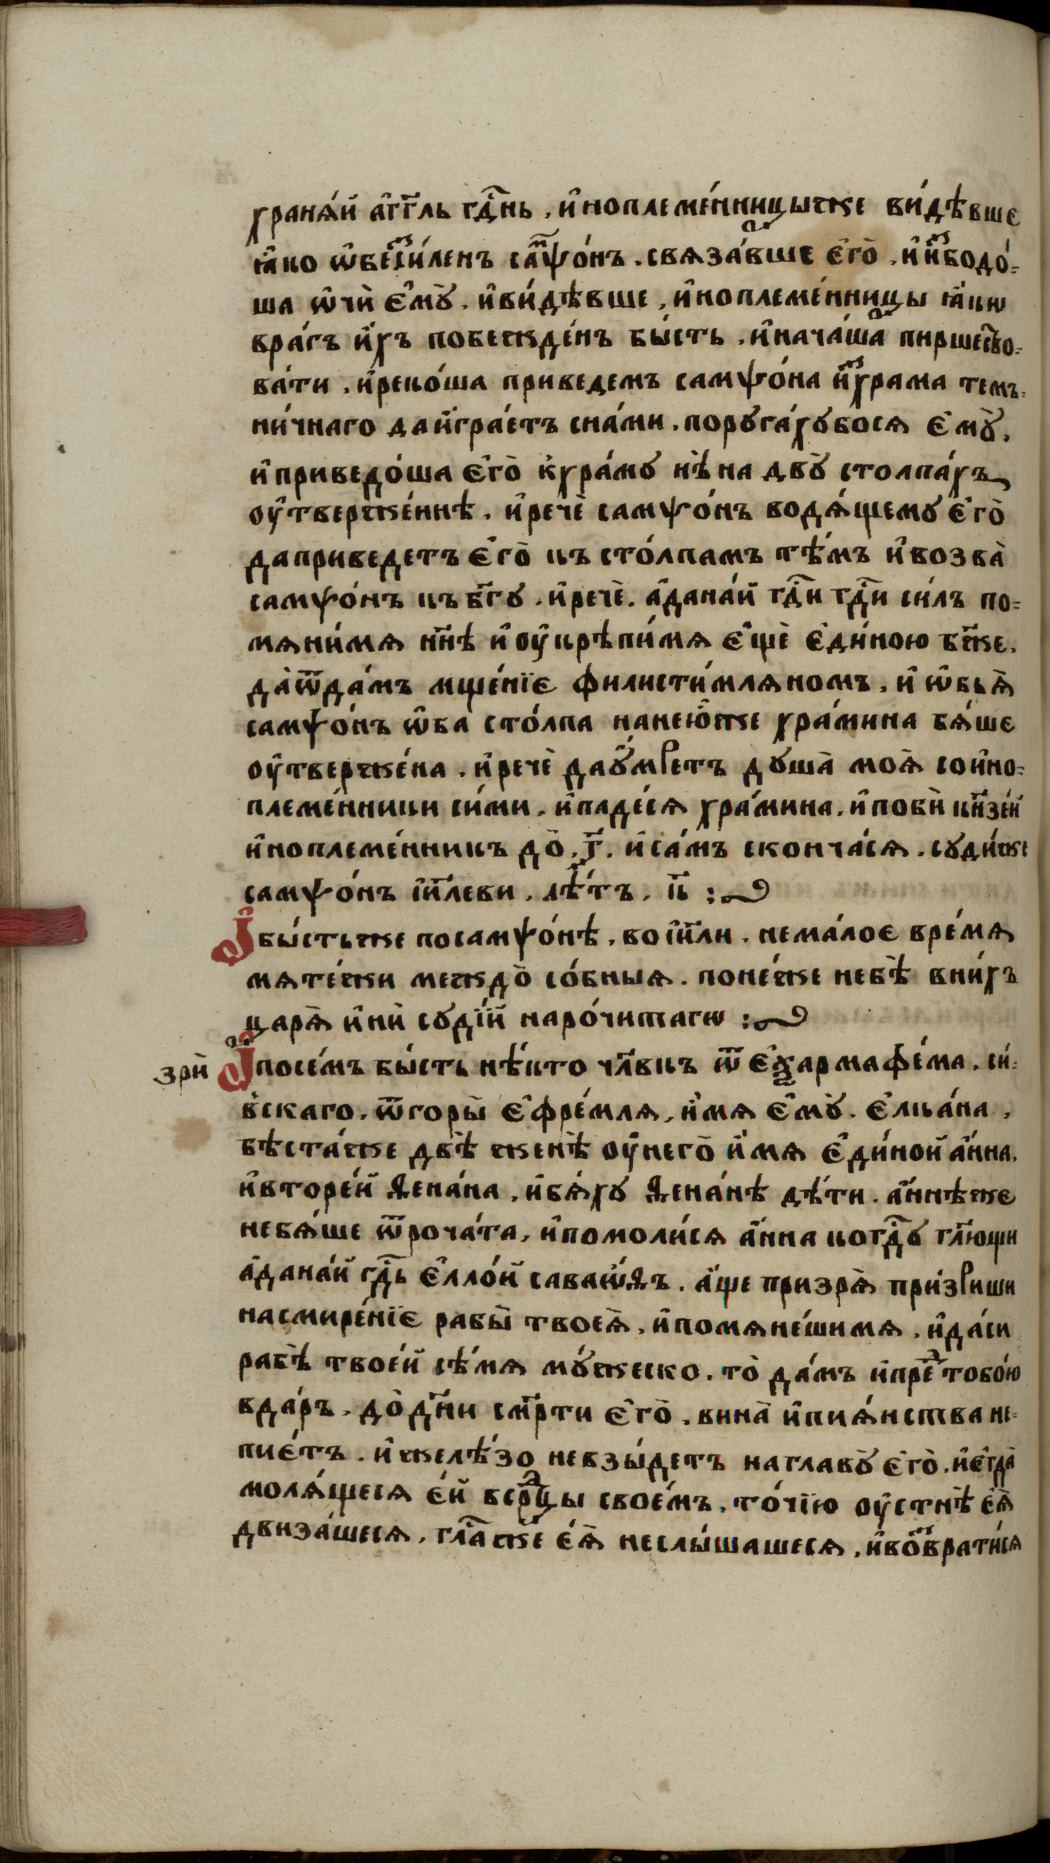 храня́й а҆гг҃ль гдⷭ҇нь . и҆ноплеме́нницыже ви́дѣвше
ꙗ҆ко ѡ҆беⷥси́ленъ саⷨѱо́нъ . свѧза́вше є҆го̀ . и҆ и҆ⷥбодо́-
ша ѡ҆чѝ є҆мꙋ̀ . и҆ви́дѣвше , и҆ноплеме́нницы ꙗ҆кѡ
вра́гъ и҆́хъ побежде́нъ бы́сть . и҆нача́ша пиршеⷭтво-
ва́ти . и҆реко́ша приведемъ самѱо́на и҆ⷥхрама темъ-
ни́чнаго даи҆гра́етъ сна́ми . порꙋга́хꙋбосѧ є҆мꙋ̀ .
и҆приведо́ша є҆го̀ к̾хра́мꙋ нѣ̀ на двꙋ̀ столпа́хъ
оу҆твержс́ннѣ . и҆речѐ самѱо́нъ водѧ́щемꙋ є҆го̀
даприведетъ є҆го̀ къ сто́лпамъ тѣ́мъ и҆возва̀
самѱо́нъ къ бг҃ꙋ . и҆речѐ . а҆дана́й гдⷭ҇и гдⷭ҇и си́лъ по-
мѧни́мѧ нн҃ѣ и҆ оу҆крѣпи́мѧ є҆щѐ є҆ди́ною бж҃е .
да̀ѿда́мъ мще́нїе филисти́млѧномъ . и҆ ѡ҆бьѧ̀
самѱо́нъ ѡ҆ба сто́лпа нанею́же хра́мина бѧ́ше
оу҆тверже́на . и҆речѐ даꙋ҆́мретъ дꙋша̀ моѧ̀ сои҆но-
племе́нники си́ми . и҆паде́сѧ хра́мина . и҆побѝ кнѧзе́й
и҆ноплеме́нникъ до̀ . г҃ . и҆са́мъ сконча́сѧ . сꙋди́же
самѱо́нъ і҆и҃леви . лѣ́тъ . к҃ :
И҆бы́стьже посамѱо́нѣ . во і҆и҃ли . нема́лое вре́мѧ
мѧте́жи междо̀ со́бныѧ . поне́же небѣ̀ вни́хъ
царѧ̀ и҆нѝ сꙋдїй́ наро́читагѡ :
зрѝ И҆посе́мъ бы́сть нѣ́кто чл҃вкъ ѿ є҆ⷯхармафе́ма . си́-
в̾скаго . ѿгоры̀ є҆фре́млѧ , и҆́мѧ є҆мꙋ̀ . є҆лка́на ,
бѣста́же двѣ̀ женѣ̀ оу҆него̀ и҆́мѧ є҆ди́ной а҆́нна .
и҆вторе́й ѳена́на , и҆бѧ́хꙋ ѳена́нѣ дѣ́ти . а҆́ннѣже
небѧ́ше ѿроча́та , и҆помоли́сѧ а҆́нна когдⷭ҇ꙋ гл҃ющи
а҆дана́й гдⷭ҇ь є҆лло́й саваѡ́ѳъ . а҆́ще призрѧ̀ при́зриши
насмире́нїе рабы̀ твоеѧ̀ , и҆помѧне́шимѧ , и҆да́си
рабѣ̀ твое́й сѣ́мѧ мꙋ́жеско . то̀ да́мъ и҆преⷣтобо́ю
вда́ръ . до̀ дн҃и смр҃ти є҆го̀ . вина̀ и҆пиѧ́нства не-
пие́тъ . и҆ желѣ́зо невзы́детъ наглавꙋ̀ є҆го̀ . и҆є҆гда̀
молѧ́щесѧ є҆́й всрⷣцы свое́мъ . то́чїю оу҆стнѣ̀ є҆ѧ̀
двиза́шесѧ , гла́ⷭже є҆ѧ̀ неслы́шашесѧ , и҆воⷥврати́сѧ